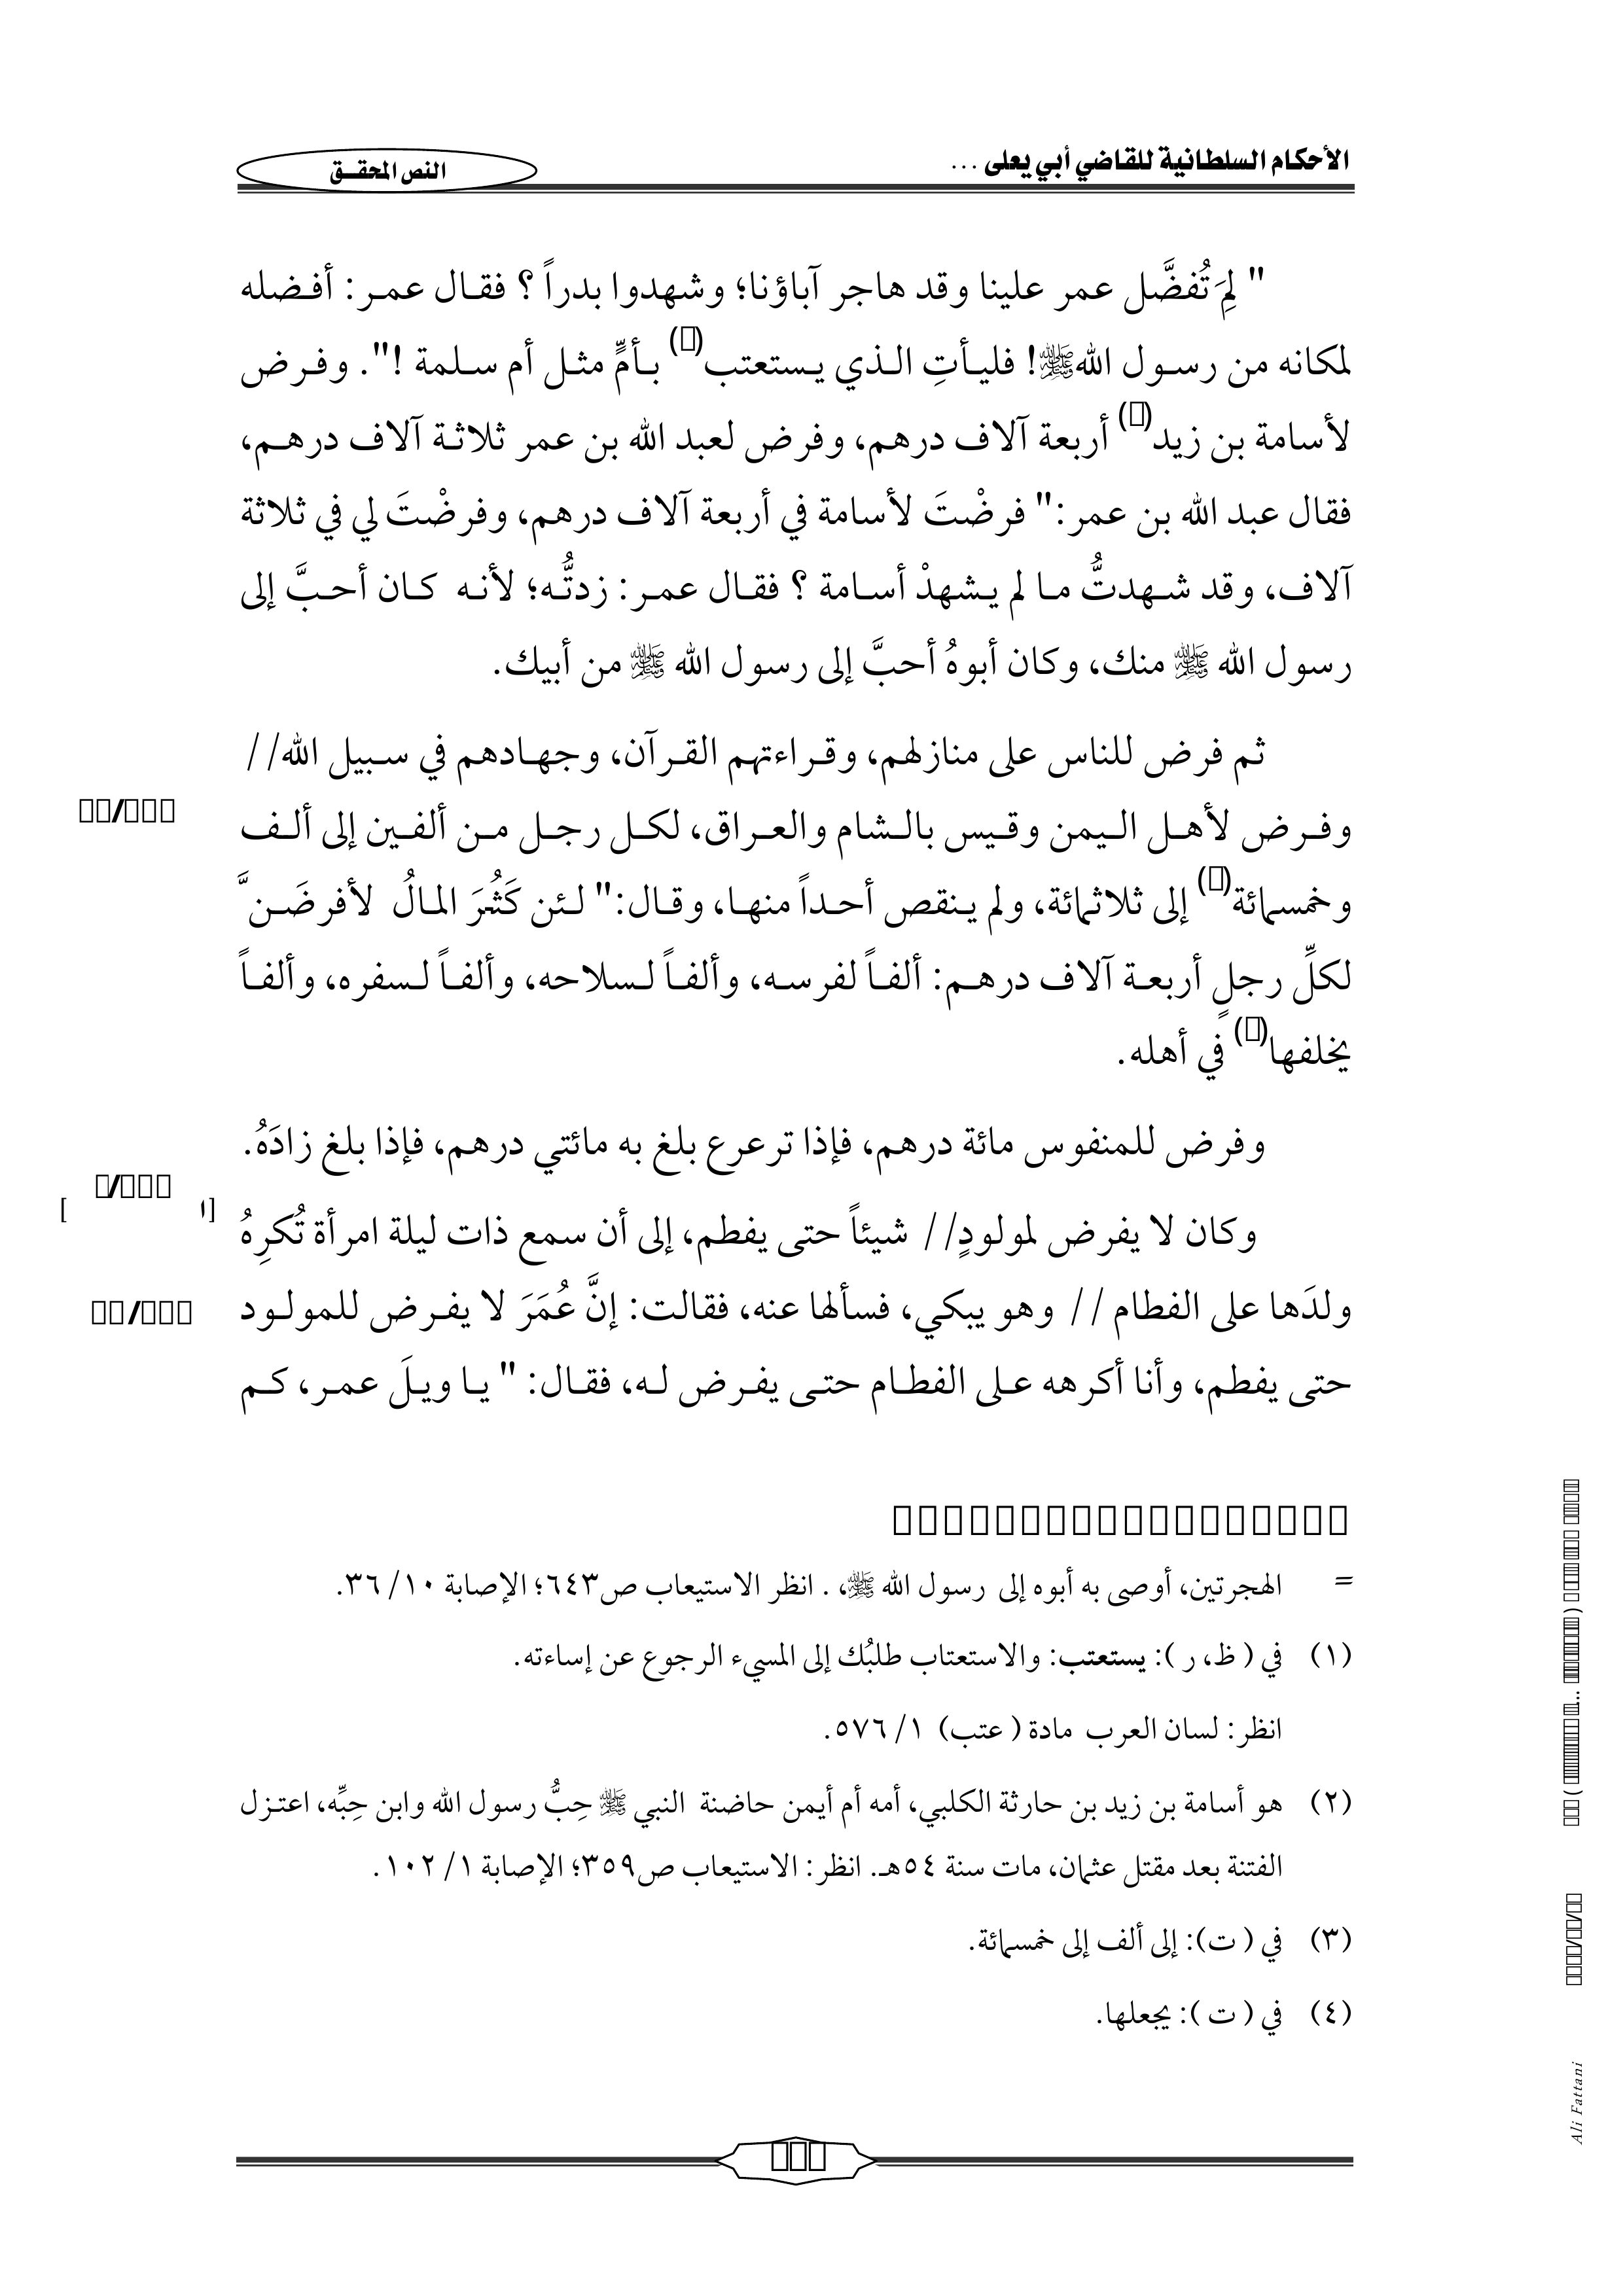 الأحكام السلطانية للقاضي أبي يعلى ...
النص المحقـق
" لِمَ تُفضَّل عمر علينا وقد هاجر آباؤنا؛ وشهدوا بدراً ؟ فقال عمر: أفضله
لمكانه من رسول اللهﷺ! فليأتِ الذي يستعتب() بأمٍّ مثل أم سلمة !". وفرض
لأسامة بن زيد() أربعة آلاف درهم، وفرض لعبد الله بن عمر ثلاثة آلاف درهم،
فقال عبد الله بن عمر:" فرضْتَ لأسامة في أربعة آلاف درهم، وفرضْتَ لي في ثلاثة
آلاف، وقد شهدتُّ ما لم يشهدْ أسامة ؟ فقال عمر: زدتُّه؛ لأنه كان أحبَّ إلى
رسول الله ﷺ منك، وكان أبوهُ أحبَّ إلى رسول الله ﷺ من أبيك.
ثم فرض للناس على منازلهم، وقراءتهم القرآن، وجهادهم في سبيل الله//
وفرض لأهل اليمن وقيس بالشام والعراق، لكل رجل من ألفين إلى ألف
وخمسمائة() إلى ثلاثمائة، ولم ينقص أحداً منها، وقال:" لئن كَثُرَ المالُ لأفرضَنَّ
لكلِّ رجلٍ أربعة آلاف درهم: ألفاً لفرسه، وألفاً لسلاحه، وألفاً لسفره، وألفاً
يخلفها() في أهله.
وفرض للمنفوس مائة درهم، فإذا ترعرع بلغ به مائتي درهم، فإذا بلغ زادَهُ.
[ا ]
وكان لا يفرض لمولودٍ// شيئاً حتى يفطم، إلى أن سمع ذات ليلة امرأة تُكرِهُ
ولدَها على الفطام // وهو يبكي، فسألها عنه، فقالت: إنَّ عُمَرَ لا يفرض للمولود
حتى يفطم، وأنا أكرهه على الفطام حتى يفرض له، فقال: " يا ويلَ عمر، كم
= الهجرتين، أوصى به أبوه إلى رسول الله ﷺ، . انظر الاستيعاب ص٦٤٣؛ الإصابة ١٠/ ٣٦.
(١) في ( ظ، ر ): يستعتب: والاستعتاب طلبُك إلى المسيء الرجوع عن إساءته.
انظر: لسان العرب مادة ( عتب) ١/ ٥٧٦.
(٢) هو أسامة بن زيد بن حارثة الكلبي، أمه أم أيمن حاضنة النبي ﷺ حِبُّ رسول الله وابن حِبِّه، اعتزل
الفتنة بعد مقتل عثمان، مات سنة ٥٤هـ. انظر: الاستيعاب ص٣٥٩؛ الإصابة ١/ ١٠٢.
(٣) في ( ت): إلى ألف إلى خمسمائة.
(٤) في ( ت ): يجعلها.
Ali Fattani